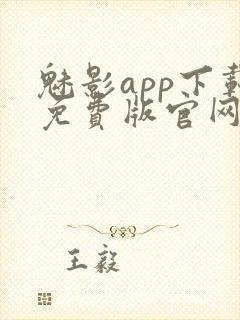 魅影app下载
免费版官网
王毅